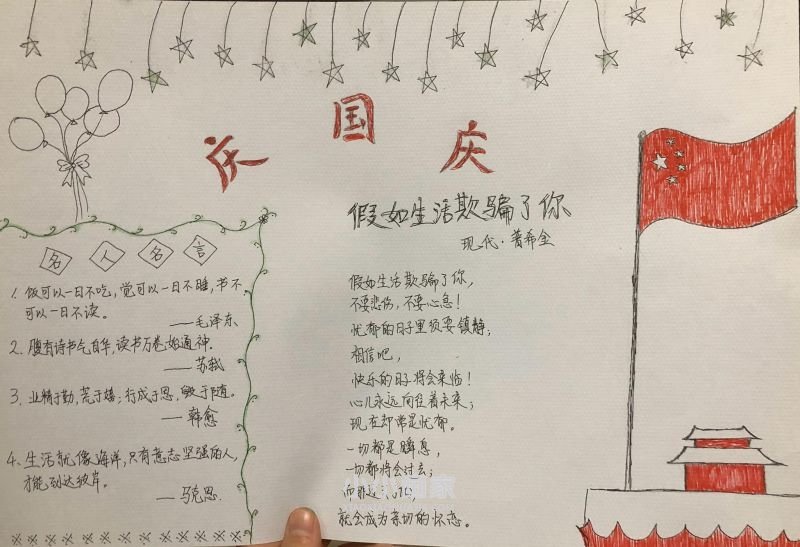 庆国庆
名人名言
1. 饭可以一日不吃，觉可以一日不睡，书不
可以一日不读。
——毛泽东
2. 腹有诗书气自华，读书万卷始通神。
——苏轼
3. 业精于勤，荒于嬉；行成于思，毁于随。
——韩愈
4. 生活就像海洋，只有意志坚强的人，
才能到达彼岸。
——马克思.
假如生活欺骗了你
现代·普希金
假如生活欺骗了你，
不要悲伤，不要心急！
忧郁的日子里须要镇静，
相信吧，
快乐的日子将会来临！
心儿永远向往着未来；
现在却常是忧郁。
一切都是瞬息，
一切都将会过去；
而那
就会成为亲切的怀恋。